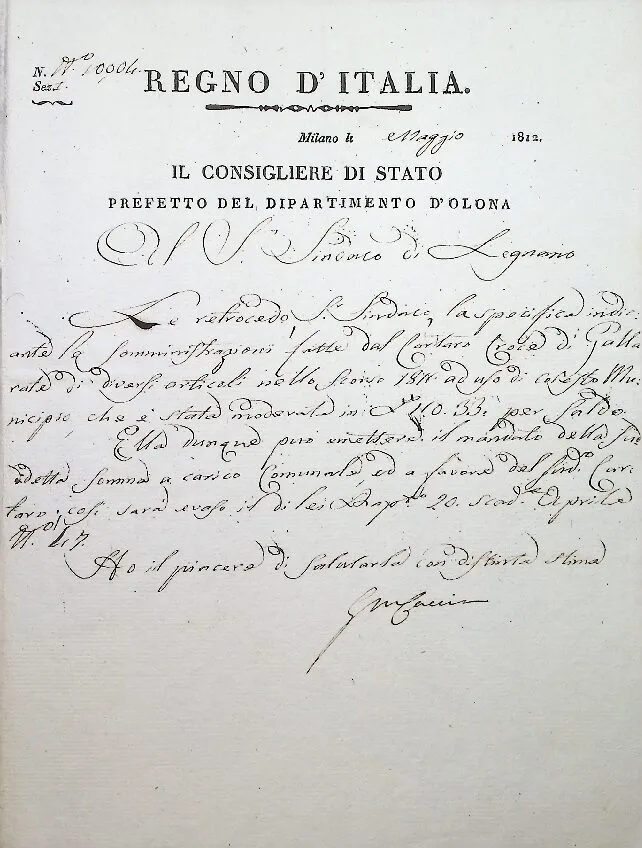 N. N.º 10,004.
Sez. I.
REGNO D'ITALIA.
Milano li Maggio 1812.
IL CONSIGLIERE DI STATO
PREFETTO DEL DIPARTIMENTO D'OLONA
Al S.r Sindaco di Legnano
Le retrocedo, S.r Sindaco, la specifica indic-
ante le somministrazioni fatte dal Cartaro Croce di Galla
rate di diversi articoli nello scorso 1811 ad uso di cotesto Mu-
nicipio, che e' stata moderata in 110. 33: per saldo.
Ella dunque può emettere il mandato della sud
detta somma a carico Comunale ed a favore del sud.o Car-
taro; così sarà evaso il di lei Rapp.to 20. scad.e Aprile
N.º 417.
Ho il piacere di salutarla con distinta stima